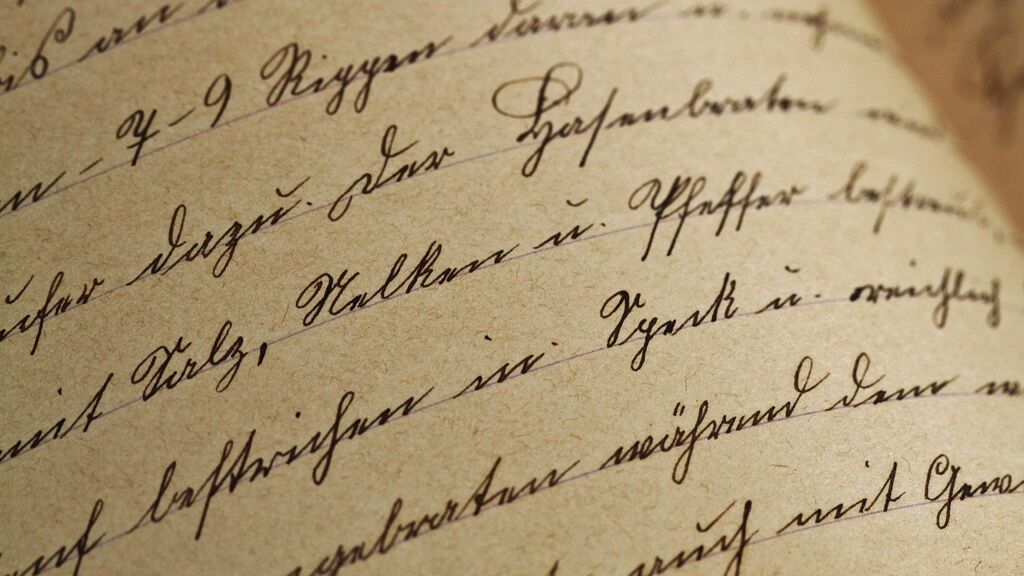 bis an
n - 7-9 Rippen daran u.
ufer dazu. Der Hasenbraten
mit Salz, Nelken u. Pfeffer bestreut
bestrichen in Speck u. reichlich
gebraten während dem
auch mit Gew